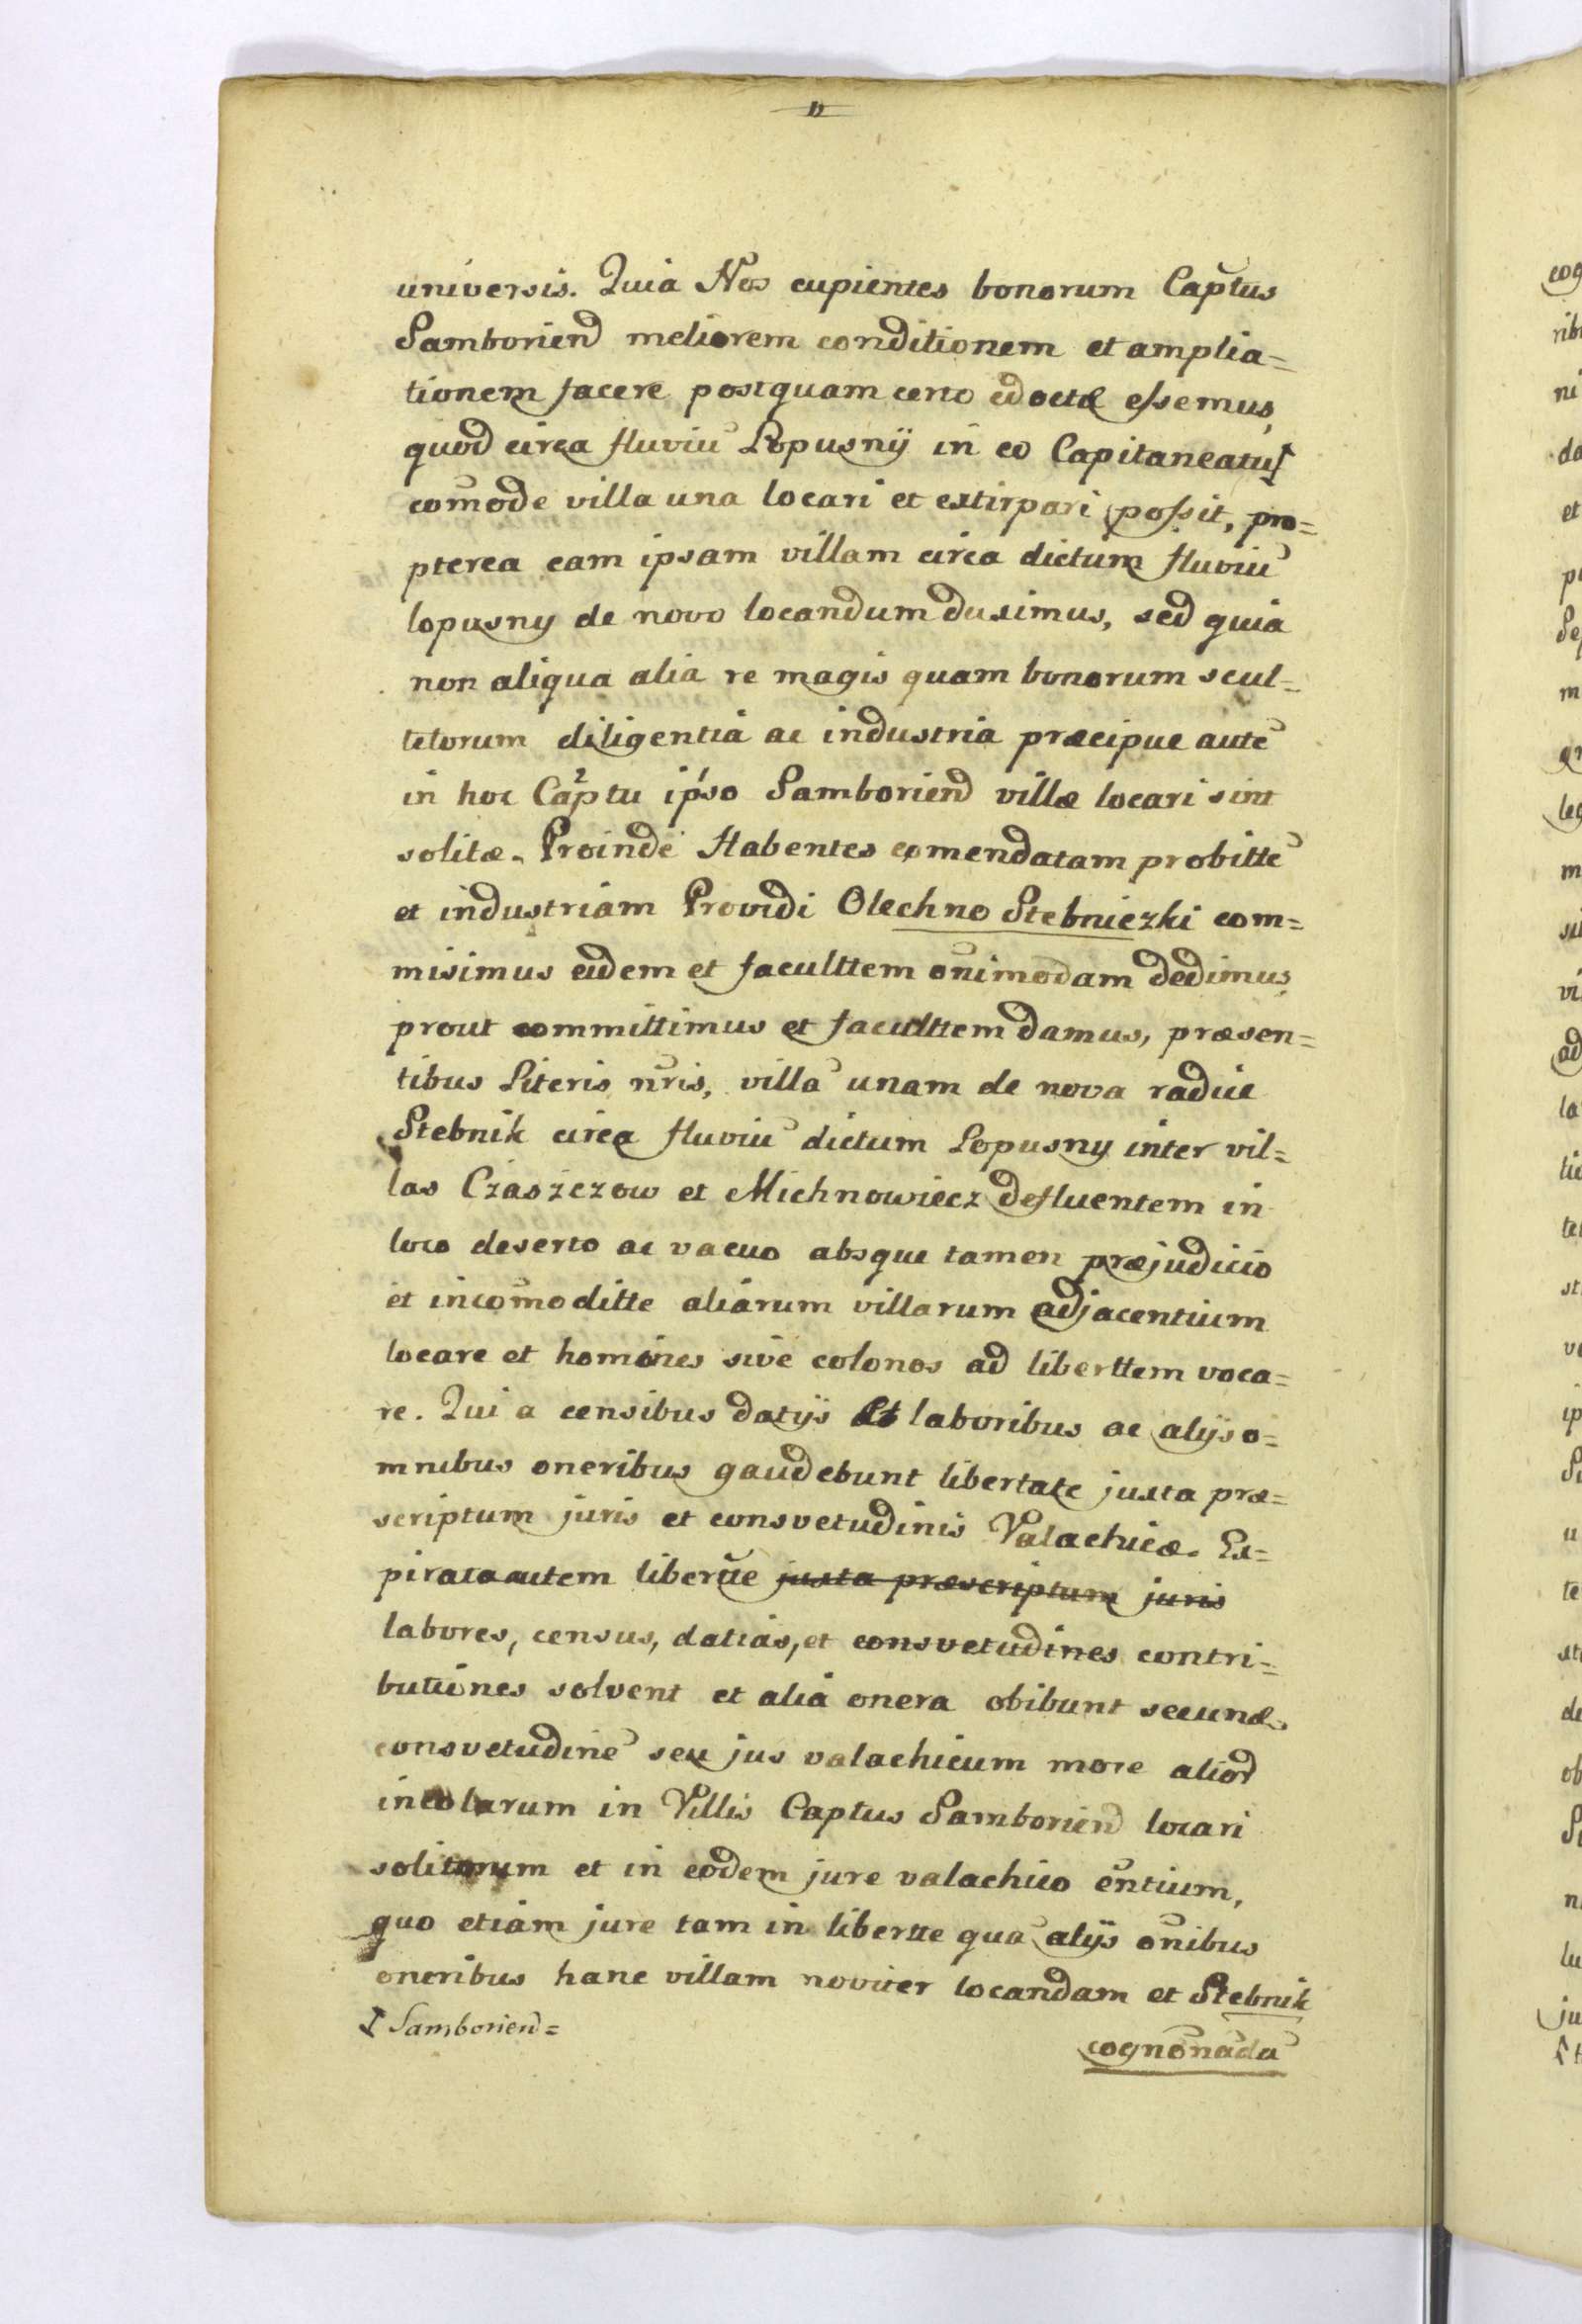 universis. Quia Nos cupientes bonorum Capt̄us
Samborien̄d meliorem conditionem et amplia=
tionem facere postquam certo edoctæ essemus,
quod circa fluviū Lopusnÿ in eo Capitaneatu⌠
com̄ode villa una locari et extirpari possit, pro=
pterea eam ipsam villam circa dictum fluviū
lopusny de novo locandum duximus, sed quia
non aliqua alia re magis quam bonorum scul=
tetorum diligentia ac industria præcipue autē
in hoc Captu ipso Samborien̄d villæ locari sint
solitæ. Proinde Habentes comendatam probittē
et industriam Providi Olechno Stebniczki com=
misimus eidem et faculttem on̄imodam dedimus,
prout committimus et faculttem damus, præsen=
tibus Literis nr̄is, villā unam de nova radice
Stebnik circa fluviū dictum Lopusny inter vil=
las Czaszczow et Michnowiecz defluentem in
loco deserto ac vacuo absque tamen præjudicio
et incom̄oditte aliarum villarum adjacentium
locare et homines sive colonos ad liberttem voca=
re. Qui a censibus datÿs et laboribus ac alÿs o=
mnibus oneribus gaudebunt libertate juxta præ=
scriptum juris et consvetudinis Valachicæ. Ex=
pirata autem libertte juxta præscriptum juris
labores, census, datias, et consvetudines contri=
butiones solvent et alia onera obibunt secund.
consvetudinē seu jus valachicum more alior
incolarum in Villis Captus Samborien̄d locari
solitorum et in eodem jure valachico en̄tium,
quo etiam jure tam in libertte quā alÿs on̄ibus
oneribus hanc villam noviter locandam et Stebnik
⌠ Samborien̄d=
cognōnadā